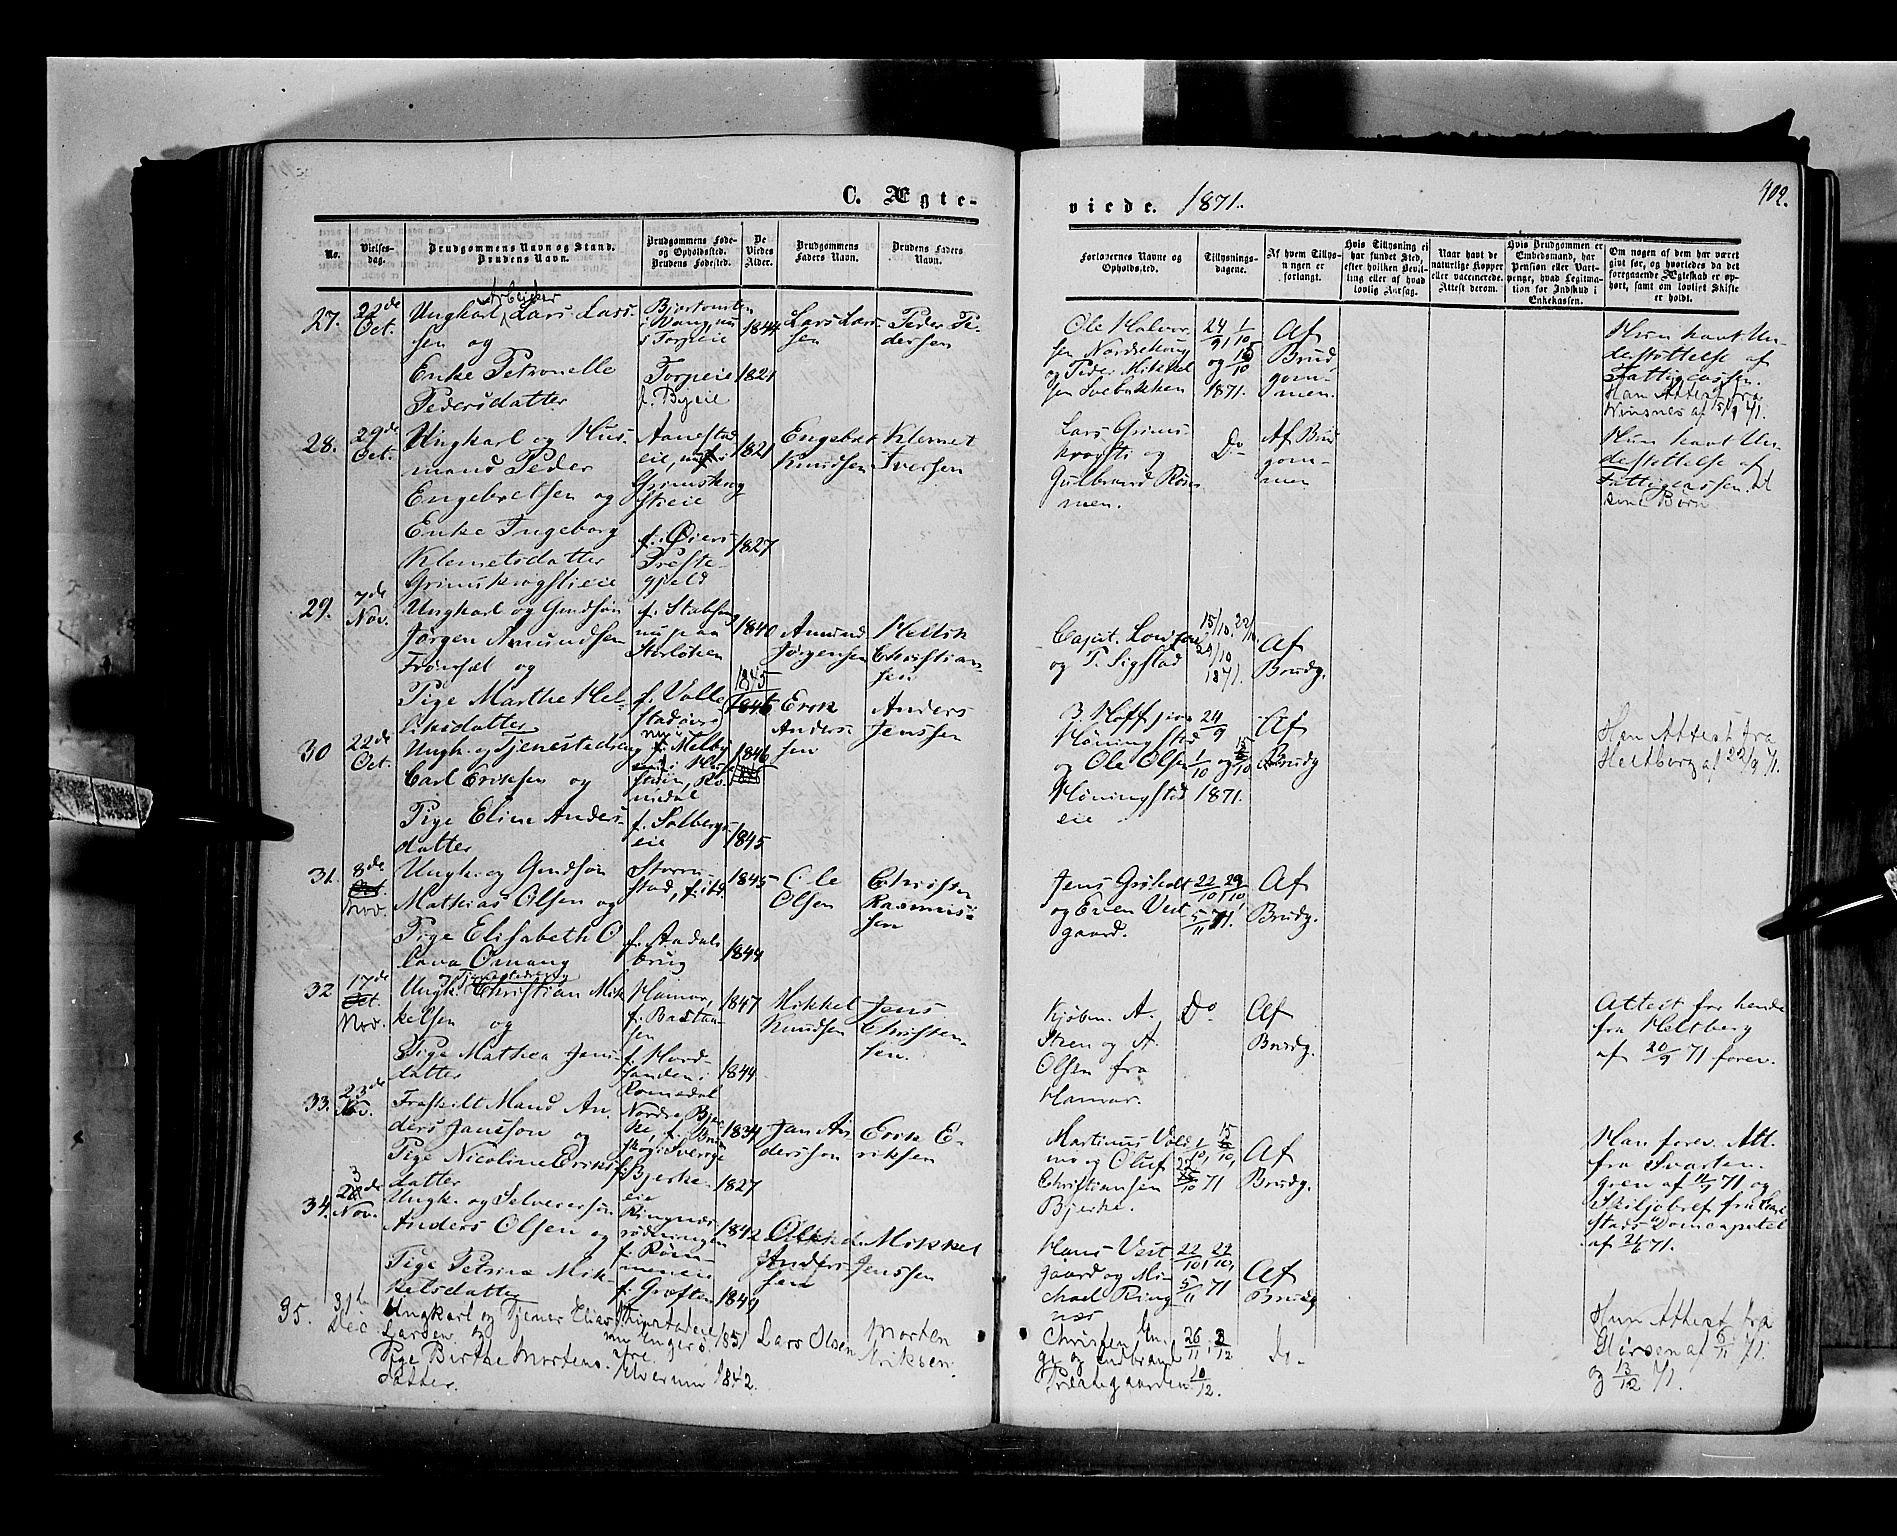 C. Ægte-
viede. 1871.
402.
No.
Vielses-
dag.
Brudgommens Navn og Stand.
Brudens Navn.
Brudgommens Føde-
og Opholdssted.
Brudens Fødested.
De
Viedes
Alder.
Brudgommens
Faders Navn.
Brudens Faders
Navn.
Forlovernes Navne og
Opholdssted.
Tillysnings-
dagene.
Af hvem Tillys-
ningen er
forlangt.
Hvis Tillysning ei
har fundet Sted,
efter hvilken Bevil-
ling eller af hvad
lovlig Aarsag.
Naar havt de
naturlige Kopper
eller vaccinerede.
Attest derom.
Hvis Brudgommen er
Embedsmand, har
Pension eller Vart-
penge, hvad Legitima-
tion for Indskud i
Enkekassen.
Om nogen af dem har været
gift før, og hvorledes da det
foregaaende Ægteskab er op-
hørt, samt om lovligt Skifte
er holdt.
27.
22de
Oct.
Arbeider
Ungkarl Lars Lars-
sen og
Enke Petronelle
Pedersdatter
i Vang, nu
i Torpeie
Torpeie
f. Byeie
1844
1821
Lars Lars-
sen
Peder Pe-
dersen
Ole Halvor-
sen
og Peder Mikkel
sen
24/9, 1/10
og 15/10
1871.
Af
Brud-
gom-
men.
Hun havt Un-
derstøttelse af
Fattigcassen.
Han Attest fra
28.
29de
Oct.
Ungkarl og Hus-
mand Peder
Engebretsen og
Enke Ingeborg
Klemetsdatter
Grimskrogstieie
Aanestad
eie,
Grimskrog
stieie
f. Øiers
Præste-
gjeld
1821
1827
Engebret
Knudsen
Klemet
Iversen
Lars Grims-
krogsti og
Gulbrand Røm
men.
Do
Af Brud
gom-
men
Hun havt Un-
derstøttelse af
Fattigcassen til
sine Børn
29.
7de
Nov.
Ungkarl og Gmdsøn
Jørgen Amundsen
Frønsdal og
Pige Marthe Hel-
liksdatter
nu paa
Storløken
1840
1845
Amund
Jørgensen
Hellik
Christian-
sen
og P. Sigstad
15/10, 22/10
29/10
1871.
Af
Brudg.
30
22de
Oct.
Ungk. og Tjenestedreng
Carl Eriksen og
Pige Eline Anders-
datter
f. Melby
Ro-
medal
f. Solbergs-
eie
1846
1845
Erik
Anders-
sen
Anders
Jenssen
Høningstad
og Ole Olsen
Høningstad
eie
24/9
1/10 og 15/10
1871.
Af
Brudg
Han Attest fra
Heltberg af 22/9 71.
31.
8de
Oct.
Nov.
Ungk. og Gmdsøn
Mathias Olsen og
Pige Elisabeth O
lava Omang
Storm-
stad, f. ibd.
f. Aadals
brug
1845
1844
Ole
Olsen
Christen
Rasmus-
sen
Jens Grøholt
og Even Vest
gaard.
22/10 29/10
5/11 71
Af
Brudg.
32
17de
Oct.
Nov.
Tjenestedreng
Ungk. Christian Mik
kelsen og
Pige Mathea Jens-
datter
Hamar,
f. Bastan-
sen
Romedal
1847
1844
Mikkel
Knudsen
Jens
Christen-
sen.
Kjøbm. A.
Steen og A.
Olsen fra
Hamar.
Do
Af
Brudg.
Attest for hende
fra Heltberg
af 20/9 71 forev.
33.
23de
Nov.
Fraskilt Mand An-
ders Jansson og
Pige Nicoline Eriks
datter
Nordre Bjer
ke, f. Bru
skog i Sverige
f. Bjerke-
eie
1834
1827
Jan An
dersson
Erik E-
riksen
Martinus Vold
mo og Oluf
Christiansen
Bjerke.
1/10, 15/10,
22/10 71
Af
Brudg.
Han forev. Att.
fra Svarten-
gren af 11/9 71 og
Skiljobref fra Carl
stads Domcapitel
af 21/6 71.
34.
Nov.
Ungk. og Selveiersøn
Anders Olsen og
Pige Petrine Mik-
kelsdatter
Ringnæs-
rødningen
f. Grøften
1842
1849
Anders-
sen
Mikkel
Jenssen
Hans Vest
gaard og Mi
chael Ring
næs
22/10, 29/10,
5/11 71
Af
Brudg
35.
Dec
Ungkarl og Tjener Elias
Larsen og
Pige Birthe Mortens-
datter.
Elverum
1851
1842.
Lars Olsen
Morten
Eriksen.
26/11, 3/12
10/12.
Do.
Hun Attest fra
af 5/11 71.
og 13/12 71.